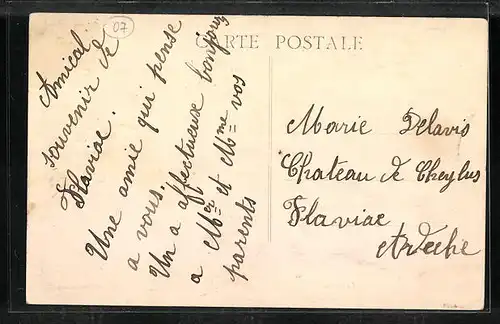 07
CARTE POSTALE
Amical
souvenir de
Flaviac.
Une amie qui pense
a vous.
Un a affectueux bonjour
a Mr et Mme vos
parents
Marie Delavis
Chateau de Cheylus
Flaviac
Ardeche